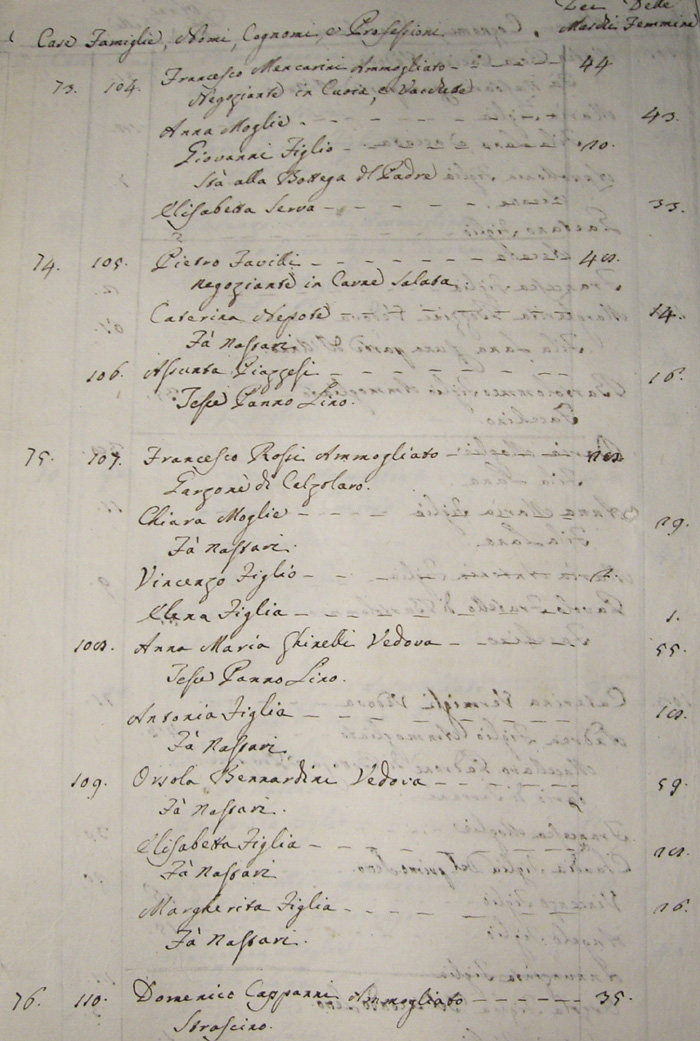 Dei Delle
Case Famiglie, Nomi, Cognomi, e Professioni Maschi Femmine
73. 104. Francesco Mencarini Ammogliato 44
Negoziante in Cuoia, e Vacchete
Anna Moglie 43.
Giovanni Figlio 10.
Stà alla Bottega del Padre
Elisabetta Serva 33.
74. 105. Pietro Favilli 48.
Negoziante in Carne Salata
Caterina Nepote 14.
Fà Nastari
106. Assunta Piazzesi 16.
Tesse Panno Lino.
75. 107. Francesco Rossi Ammogliato
Garzone di Calzolaro.
Chiara Moglie 29.
Fà Nastari.
Vincenzo Figlio
Elena Figlia 1.
108. Anna Maria Ghinelli Vedova 55.
Tesse Panno Lino.
Antonia Figlia 18.
Fà Nastari
109. Orsola Bernardini Vedova 59.
Fà Nastari.
Elisabetta Figlia 28.
Fà Nastari
Margherita Figlia 26.
Fà Nastari.
76. 110. Domenico Cappanni Ammogliato 35.
Strascino.